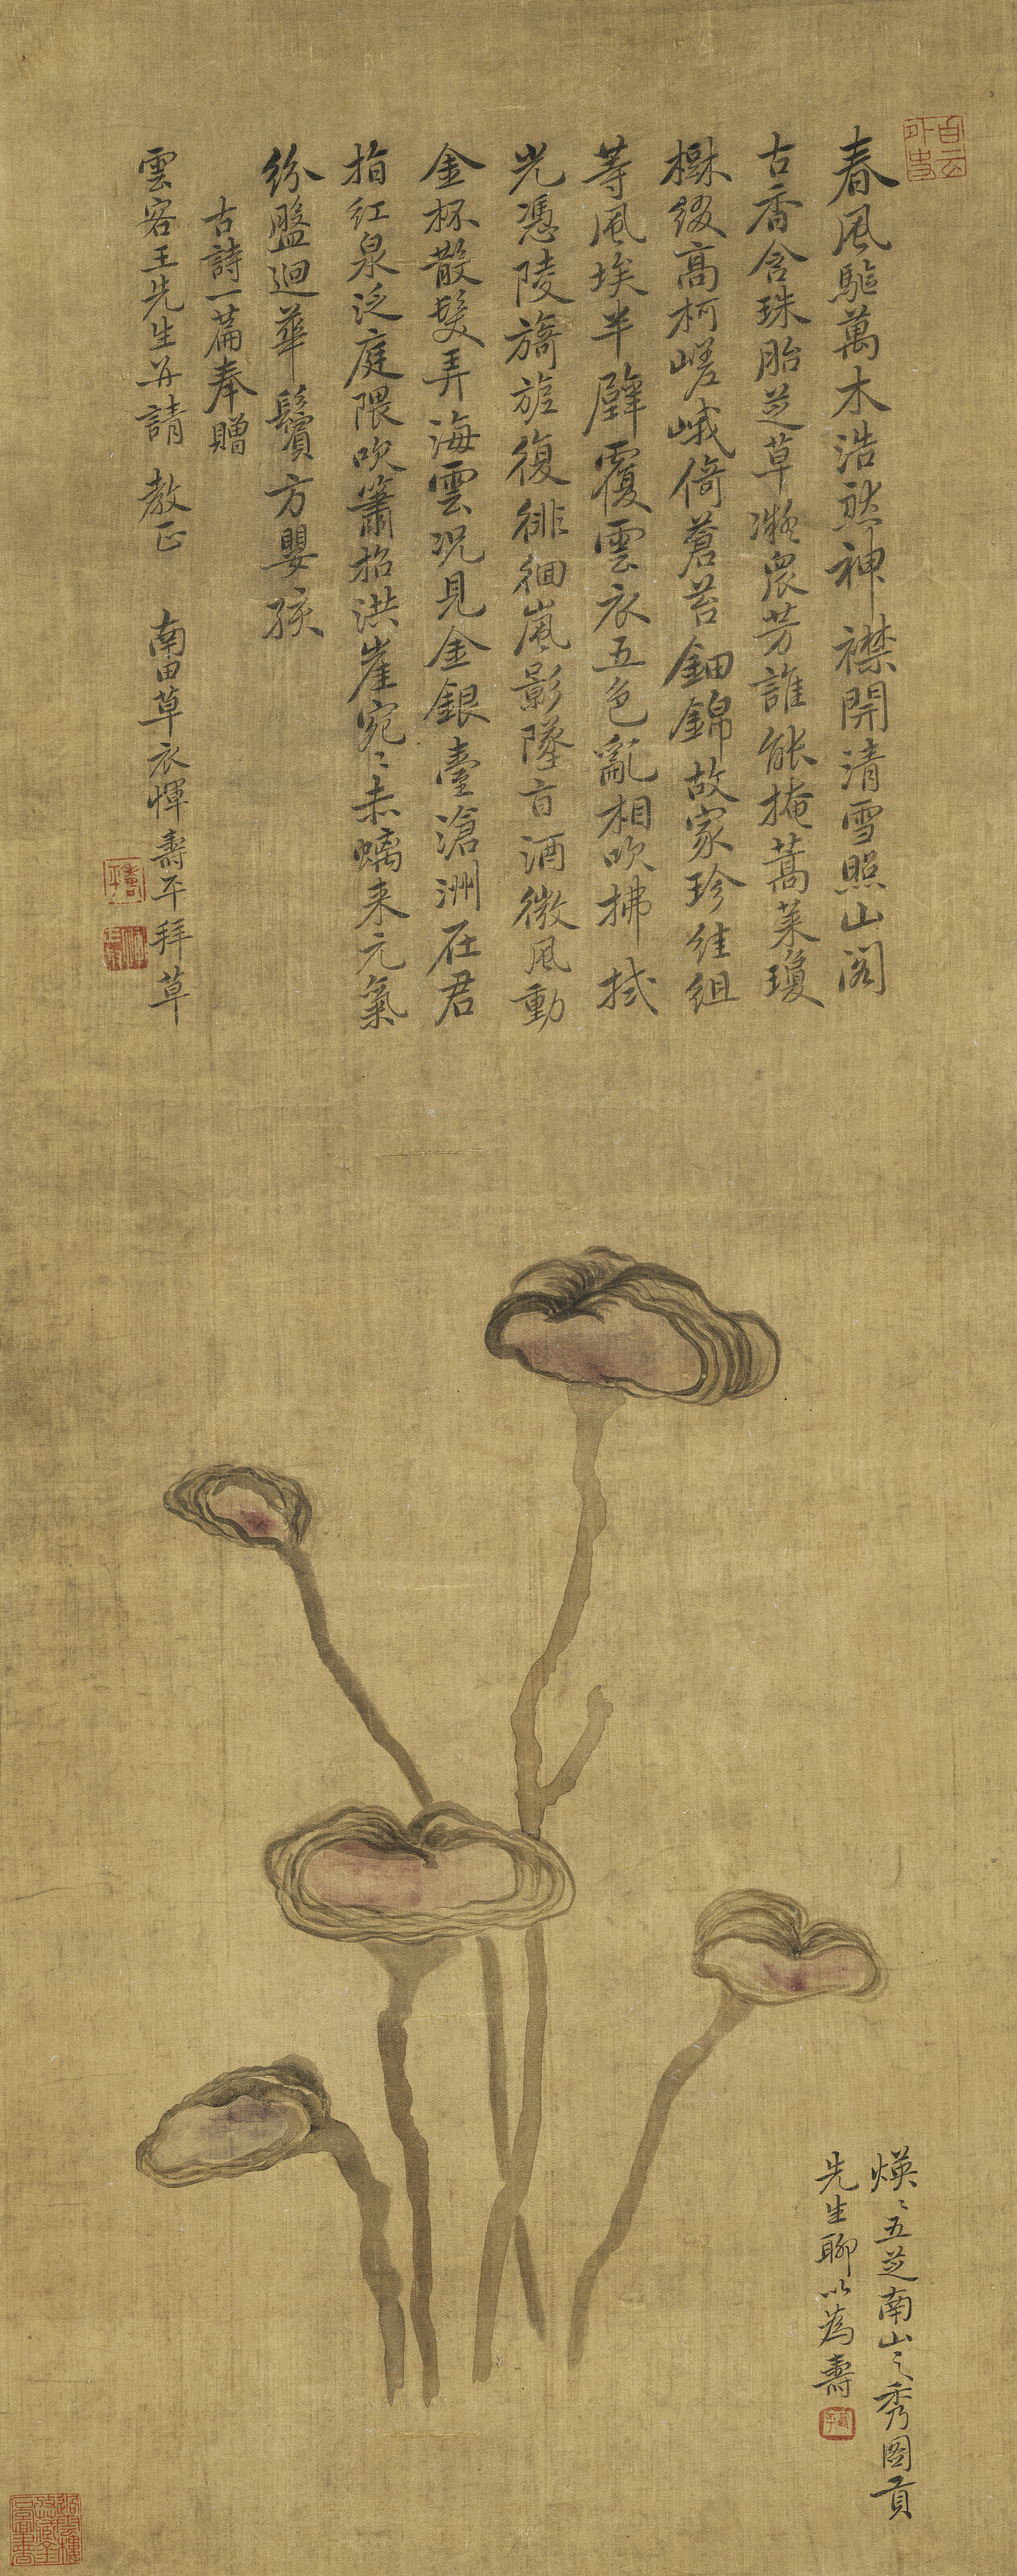 春風驅萬木浩然神襟開清雪照山閣
古香含珠胎芝草凝衆芳誰能掩蒿萊瓊
樹綴高柯嵯峨倚蒼苔鈿錦故家珍維組
等風埃半壁覆雲衣五色亂相吹拂拭
光憑陵旖旎復徘徊嵐影墜言酒微風動
金杯散髮弄海雲況見金銀臺滄洲在君
指紅泉泛庭隈吹簫招洪崖宛〻赤螭来元氣
紛盤迴華鬢方嬰孩
古詩一篇奉贈
雲客王先生并請 教正 南田草衣惲壽平拜草
煐〻五芝南山之秀圖貢
先生聊以為壽
白雲外史
壽平
過雲樓